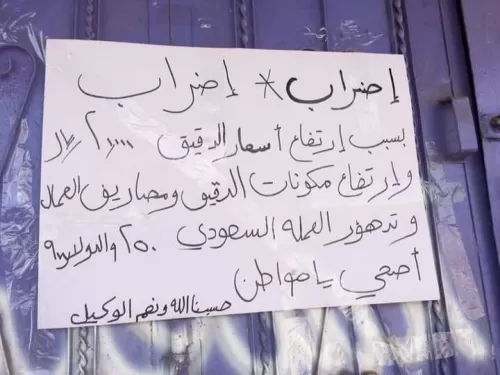 إضراب * إضراب
بسبب إرتفاع أسعار الدقيق
وإرتفاع مكونات الدقيق ومصاريف العمال
وتدهور العمله السعودي ٢٥٠ والدولار
أصحي يا مواطن
حسبنا الله ونعم الوكيل